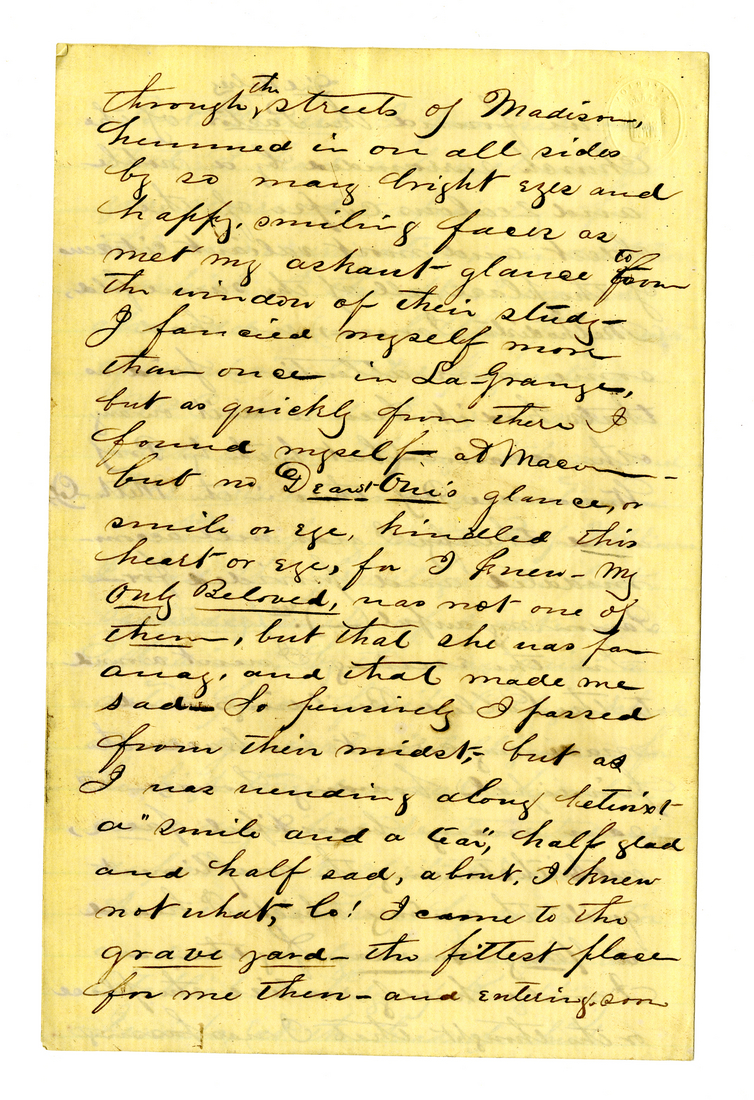 through the streets of Madison,
hemmed in on all sides
by so many bright eyes and
happy, smiling faces as
met my askant glance to from
the window of their study—
I fancied myself more
than once in La-Grange,
but as quickly from there I
found myself at Macon—
but no Dearest Onie's glance, or
smile or eye, kindled this
heart or eye, for I knew— My
Only Beloved, was not one of
them, but that she was far
away, and that made me
sad— So pensively I passed
from their midst, but as
I was wending along betwixt
a "smile and a tear", half glad
and half sad, about, I knew
not what, lo! I came to the
grave yard— the fittest place
for me then— and entering, soon